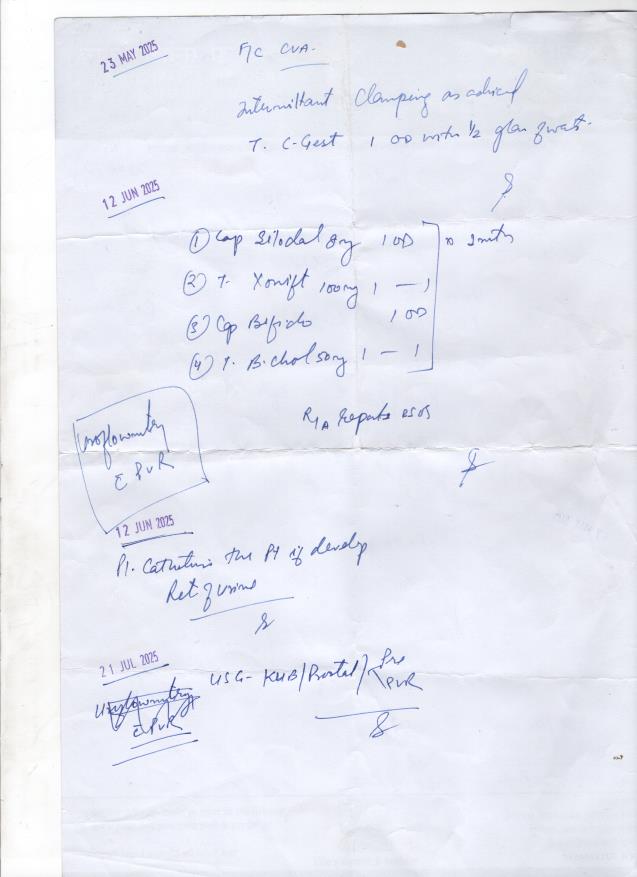 23 MAY 2025
F/C CVA.
Intermittant Clamping as advised
T. C-Gest 1 OD with 1/2 glass of water.
12 JUN 2025
① Cap Silodal 8mg 1 OD
② T. 100mg 1 — 1
③ Cap Bifido 1 OD
④ T. Bichol 50mg 1 — 1
R/A Reports
Uroflowmetry
c̄ PVR
12 JUN 2025
Pl. the Pt if develop
Ret of urine
21 JUL 2025
USG- KUB/Prostate/Pre
PVR
Uroflowmetry
c̄ PVR